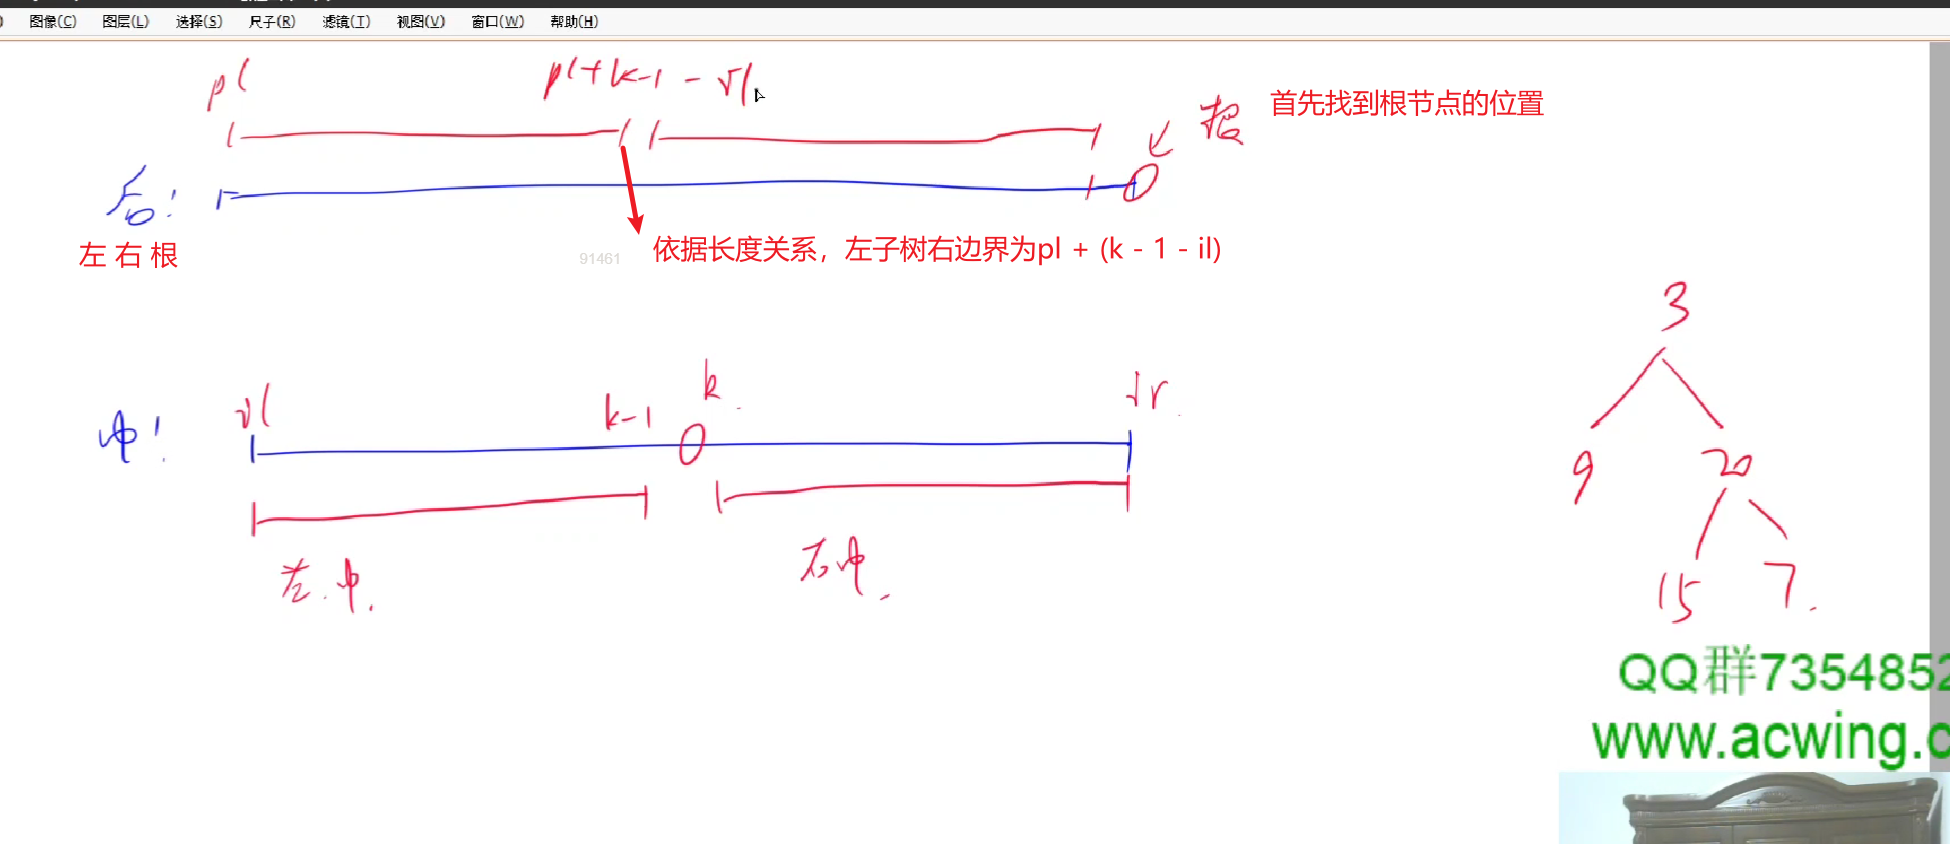 图像(C) 图层(L) 选择(S) 尺子(R) 滤镜(T) 视图(V) 窗口(W) 帮助(H)
pl
pl+k-1-il
根
首先找到根节点的位置
后:
左 右 根
91461
依据长度关系，左子树右边界为pl + (k - 1 - il)
3
k
il
k-1
ir
中:
9
20
左中
右中
15
7
QQ群7354852
www.acwing.c